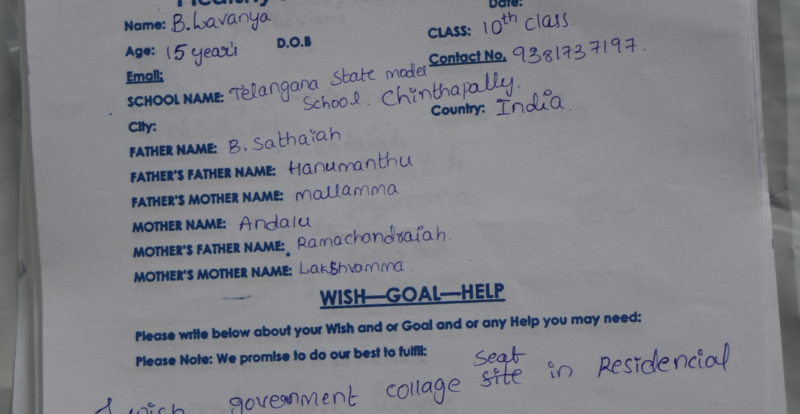 Date:
Name: B.Lavanya
CLASS: 10th class
Age: 15 years
D.O.B
Contact No. 9381737197.
Email:
SCHOOL NAME: Telangana State model
School. Chinthapally.
City:
Country: India
FATHER NAME: B. Sathaiah
FATHER'S FATHER NAME: Hanumanthu
FATHER'S MOTHER NAME: mallamma
MOTHER NAME: Andalu
MOTHER'S FATHER NAME: Ramachandraiah.
MOTHER'S MOTHER NAME: Lakshvamma.
WISH—GOAL—HELP
Please write below about your Wish and or Goal and or any Help you may need:
Please Note: We promise to do our best to fulfil:
Seat
I wish government collage site in Residencial